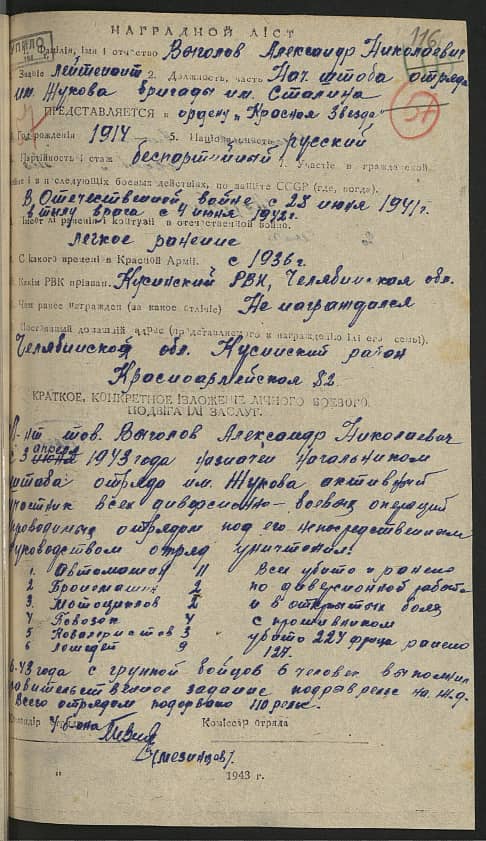 НАГРАДНОЙ ЛІСТ
116
Фаміlія, імя і отчество Выголов Александр Николаевич
Звание лейтенант 2. Должность, часть Нач. штаба отряда
им. Жукова бригады им. Сталина
ПРЕДСТАВЛЯЕТСЯ к ордену „Красная Звезда"
Год рожденія 1914 5. Національность русский
Партійность і стаж беспартийный 7. Участіе в гражданской
войне і в последующіх боевых действіях, по защіте СССР (где, когда).
В Отечественной войне с 28 июня 1941 г.
в тылу врага с 4 июня 1942 г.
Імеет лі раненія і контузіі в отечественной войне.
легкое ранение
С какого времені в Красной Арміі. с 1936 г.
Какім РВК прізван. Кусинский РВК, Челябинская обл.
Чем ранее награжден (за какое отлічіе) Не награждался
Постоянный домашній адрес (представляемого к награжденію ілі его семьі).
Челябинской обл. Кусинский район
Красноармейская 82
КРАТКОЕ, КОНКРЕТНОЕ ІЗЛОЖЕНІЕ ЛІЧНОГО БОЕВОГО
ПОДВІГА ІЛІ ЗАСЛУГ.
Л-нт тов. Выголов Александр Николаевич
апреля
с 3 июня 1943 года назначен начальником
штаба отряда им. Жукова активный
участник всех диверсионно-боевых операций
проводимых отрядом под его непосредственным
руководством отряд уничтожил:
1. Автомашин 11 Всего убито и ранено
2 Бронемашин 2 по диверсионной работе
3. Мотоциклов 2 и в открытых боях
4 Повозок 4 с противником
5 Кавалеристов 3 убито 224 фрица ранено
6 лошадей 9 127.
6-43 года с группой бойцов 6 человек выполнил
правительственное задание подрыв рельс на ж.д.
Всего отрядом подорвано 110 рельс.
Командір отряда Коміссір отряда
(мезинцов).
" 1943 г.